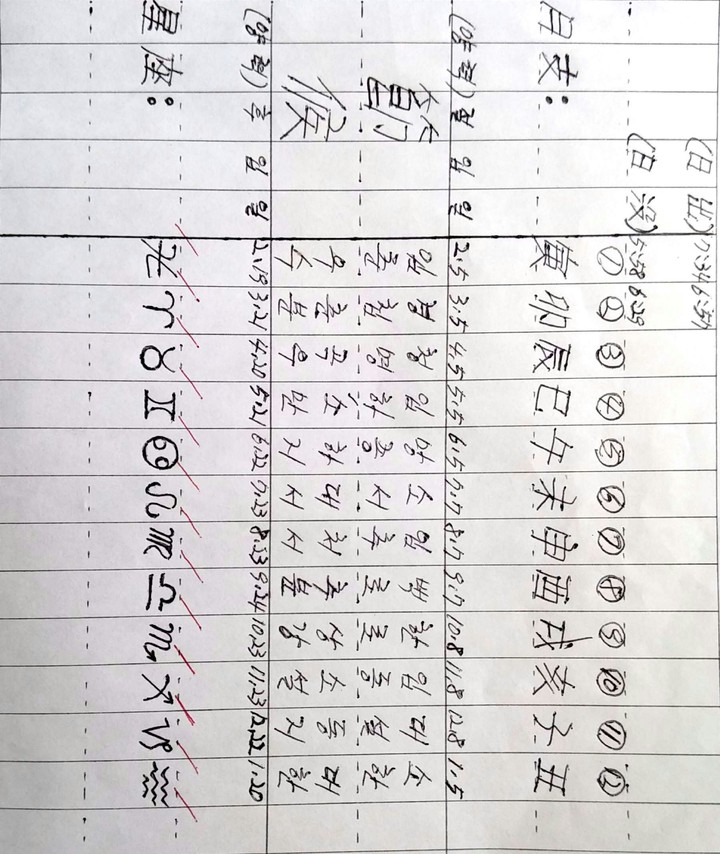 (日 出) 7:34 6:54
(日 沒) 5:58 6:29
① ② ③ ④ ⑤ ⑥ ⑦ ⑧ ⑨ ⑩ ⑪ ⑫
月 支: 寅 卯 辰 巳 午 未 申 酉 戌 亥 子 丑
(양력) 절 입 일 2.5 3.5 4.5 5.5 6.5 7.7 8.7 9.7 10.8 11.8 12.8 1.5
節 입 경 청 입 망 소 입 백 한 입 대 소
춘 칩 명 하 종 서 추 로 로 동 설 한
候 우 춘 곡 소 하 대 처 추 상 소 동 대
수 분 우 만 지 서 서 분 강 설 지 한
(양력) 후 입 일 2.19 3.21 4.20 5.21 6.22 7.23 8.23 9.24 10.23 11.23 12.22 1.20
星 座: ♓ ♈ ♉ ♊ ♋ ♌ ♍ ♎ ♏ ♐ ♑ ♒